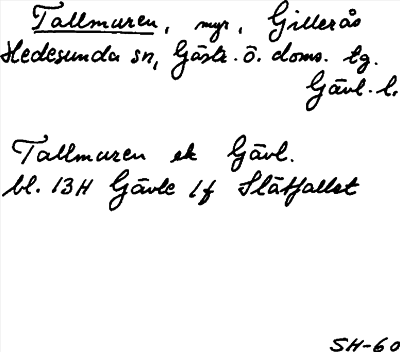 Tallmuren, myr, Gillerås
Hedesunda sn, Gästr. ö. doms. tg.
Gävl. l.
Tallmuren ek Gävl.
bl. 13H Gävle 1f Slåtfallet
SH-60